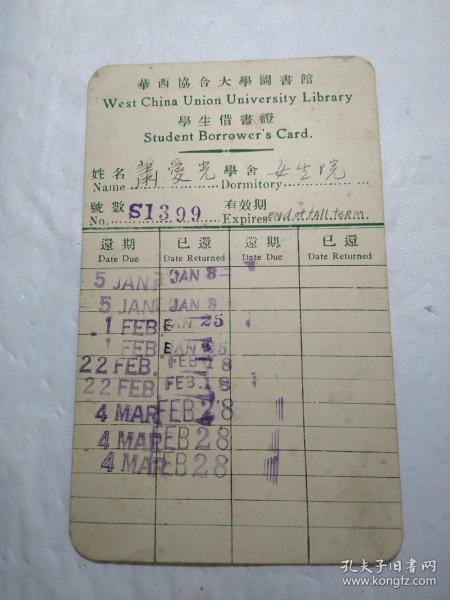 華西協合大學圖書館
West China Union University Library
學生借書證
Student Borrower's Card.
姓名 蕭愛光 學舍 女生院
Name Dormitory
號數 S1399 有效期
No. Expires end of fall term.
還期 已還 還期 已還
Date Due Date Returned Date Due Date Returned
5 JAN JAN 8
5 JAN JAN
1 FEB JAN 25
1 FEB JAN
22 FEB. FEB 18
22 FEB FEB. 18
4 MAR FEB 28
4 MAR FEB 28
4 MAR FEB 28
孔夫子旧书网
www.kongfz.com